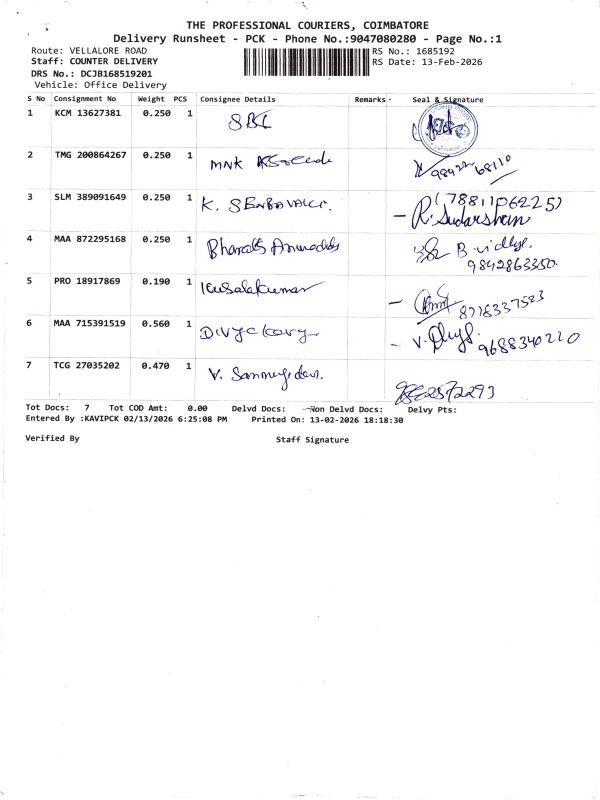 THE PROFESSIONAL COURIERS, COIMBATORE
Delivery Runsheet - PCK - Phone No.:9047080280 - Page No.:1
Route: VELLALORE ROAD RS No.: 1685192
Staff: COUNTER DELIVERY RS Date: 13-Feb-2026
DRS No.: DCJB168519201
Vehicle: Office Delivery
S No Consignment No Weight PCS Consignee Details Remarks Seal & Signature
1 KCM 13627381 0.250 1 SBI
2 TMG 200864267 0.250 1 MNK 98422 68110
3 SLM 389091649 0.250 1 K. (7881106225)
R. Sudarshan
4 MAA 872295168 0.250 1 Bharath B. vidhya.
9842863350.
5 PRO 18917869 0.190 1 Kusalakumar
6 MAA 715391519 0.560 1 V. 9688340220
7 TCG 27035202 0.470 1 V.
Tot Docs: 7 Tot COD Amt: 0.00 Delvd Docs: Non Delvd Docs: Delvy Pts:
Entered By :KAVIPCK 02/13/2026 6:25:08 PM Printed On: 13-02-2026 18:18:30
Verified By Staff Signature